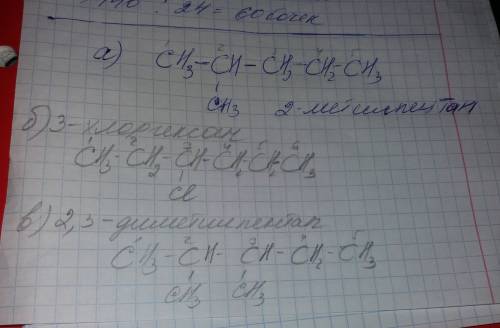 : 24 = 60 бочек
а) CH3 – CH – CH2 – CH2 – CH3
CH3 2-метилпентан
б) 3-хлоргексан
CH3 – CH2 – CH – CH2 – CH2 – CH3
Cl
в) 2,3-диметилпентан
CH3 – CH – CH – CH2 – CH3
CH3 CH3